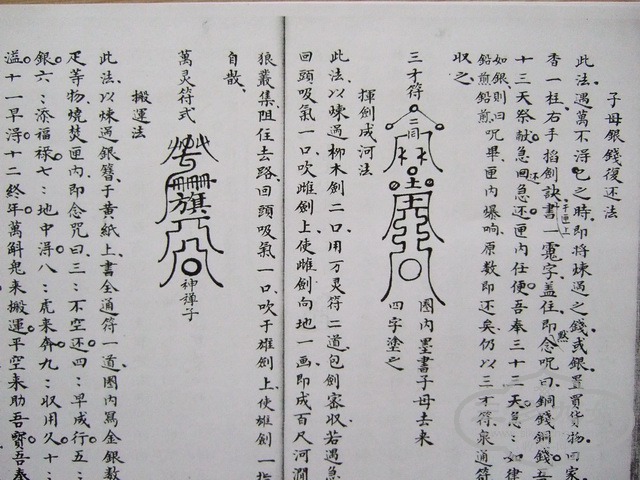 子母銀錢復还法
此法遇萬不得已之時即將煉過之錢或銀置買貨物回家
香一柱右手掐劍訣書一寃字盖住即念咒曰銅錢銅錢吾
于匣上
黙
十三天祭献急回急还还匣内任便吾奉三十三天急〻如律
如銀則曰
鉛煎鉛煎咒畢匣内爆响原数即还矣仍以三才符泉通符
収之
三才符
圈内墨書子母去来
四字塗之
揮劍成河法
此法以煉過柳木劍二口用万灵符二道包劍密収若遇急
回頭吸氣一口吹雌劍上使雌劍向地一画即成百尺河澗
狼叢集阻住去路回頭吸氣一口吹于雄劍上使雄劍一指
自散
萬灵符式
神禅子
搬運法
此法以煉過銀簪子黄紙上書全通符一道圈内寫金銀数
疋等物燒焚匣内即念咒曰三〻不空还四〻早成行五〻
銀六〻添福祿七〻地中得八〻虎来奔九〻収用久十〻
溢十一早得十二終年萬斛鬼来搬運平空来助吾寳吾奉